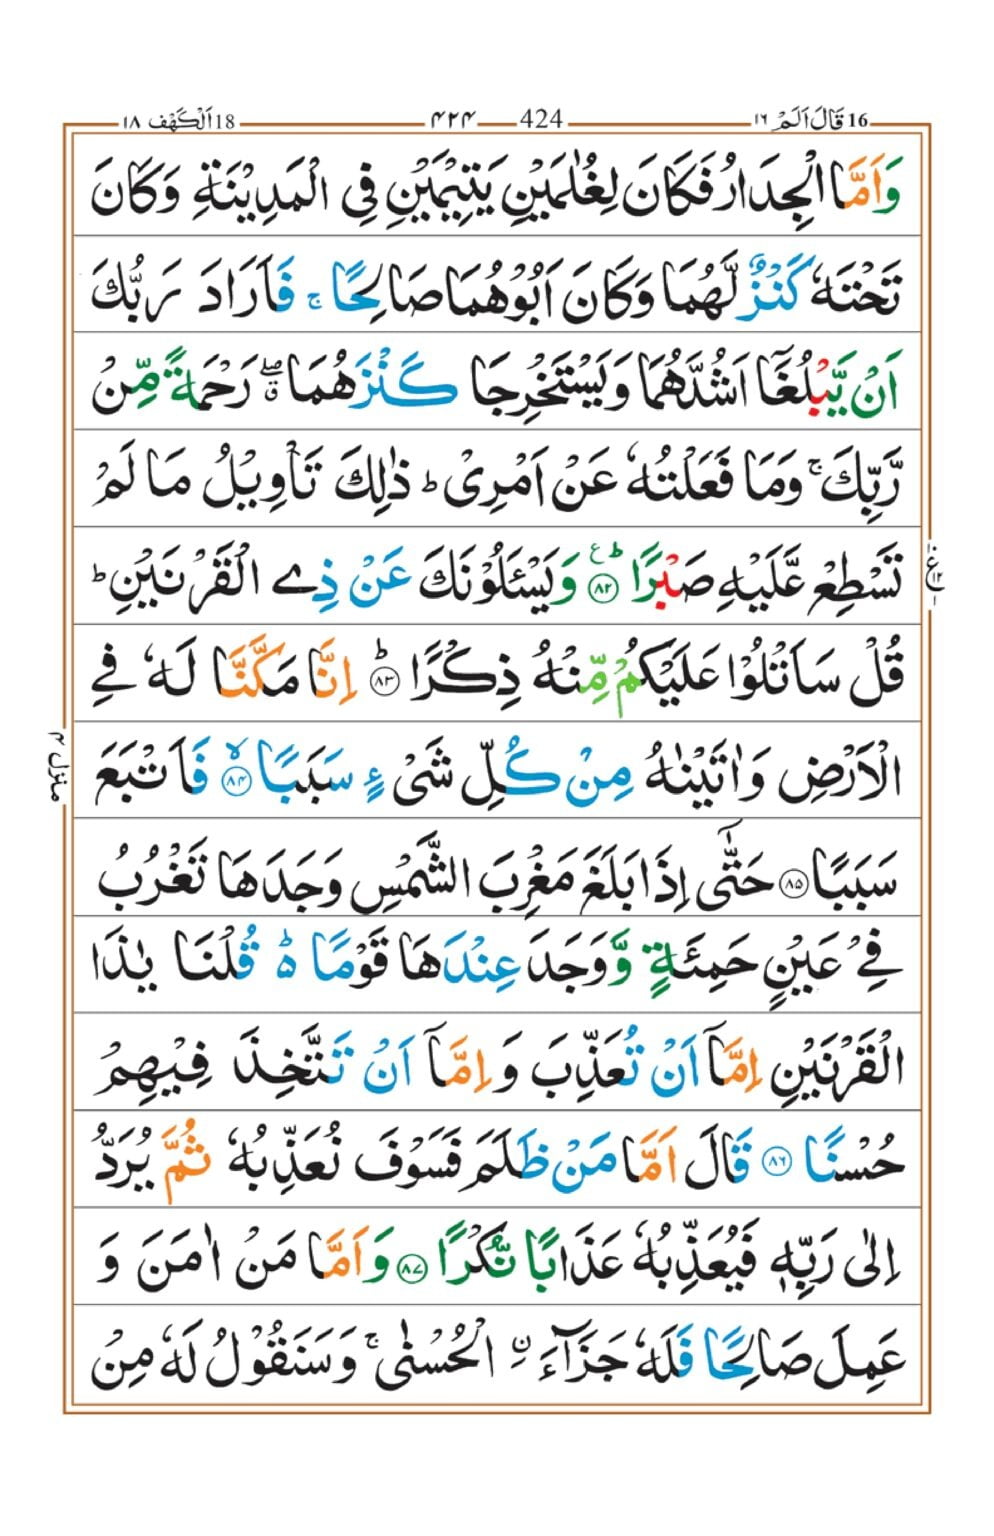 16 قَالَ اَلَمْ ١٦ 424 ۴۲۴ 18 اَلْكَهْف ١٨
وَاَمَّا الْجِدَارُ فَكَانَ لِغُلٰمَيْنِ يَتِيْمَيْنِ فِى الْمَدِيْنَةِ وَكَانَ
تَحْتَهٗ كَنْزٌ لَّهُمَا وَكَانَ اَبُوْهُمَا صَالِحًا ۚ فَاَرَادَ رَبُّكَ
اَنْ يَّبْلُغَاۤ اَشُدَّهُمَا وَيَسْتَخْرِجَا كَنْزَهُمَا ۖۗ رَحْمَةً مِّنْ
رَّبِّكَ ۚ وَمَا فَعَلْتُهٗ عَنْ اَمْرِىْ ؕ ذٰلِكَ تَاْوِيْلُ مَا لَمْ
تَسْطِعْ عَّلَيْهِ صَبْرًا ؕ ع ﴿٨٢﴾ وَيَسْـَٔلُوْنَكَ عَنْ ذِى الْقَرْنَيْنِ ؕ
قُلْ سَاَتْلُوْا عَلَيْكُمْ مِّنْهُ ذِكْرًا ؕ ﴿٨٣﴾ اِنَّا مَكَّنَّا لَهٗ فِى
الْاَرْضِ وَاٰتَيْنٰهُ مِنْ كُلِّ شَىْءٍ سَبَبًا ۙ ﴿٨٤﴾ فَاَتْبَعَ
سَبَبًا ﴿٨٥﴾ حَتّٰٓى اِذَا بَلَغَ مَغْرِبَ الشَّمْسِ وَجَدَهَا تَغْرُبُ
فِىْ عَيْنٍ حَمِئَةٍ وَّ وَجَدَ عِنْدَهَا قَوْمًا ؕ ۵ قُلْنَا يٰذَا
الْقَرْنَيْنِ اِمَّاۤ اَنْ تُعَذِّبَ وَ اِمَّاۤ اَنْ تَتَّخِذَ فِيْهِمْ
حُسْنًا ﴿٨٦﴾ قَالَ اَمَّا مَنْ ظَلَمَ فَسَوْفَ نُعَذِّبُهٗ ثُمَّ يُرَدُّ
اِلٰى رَبِّهٖ فَيُعَذِّبُهٗ عَذَابًا نُّكْرًا ﴿٨٧﴾ وَاَمَّا مَنْ اٰمَنَ وَ
عَمِلَ صَالِحًا فَلَهٗ جَزَآءَ ۨ الْحُسْنٰى ۚ وَسَنَقُوْلُ لَهٗ مِنْ
منزل ۴